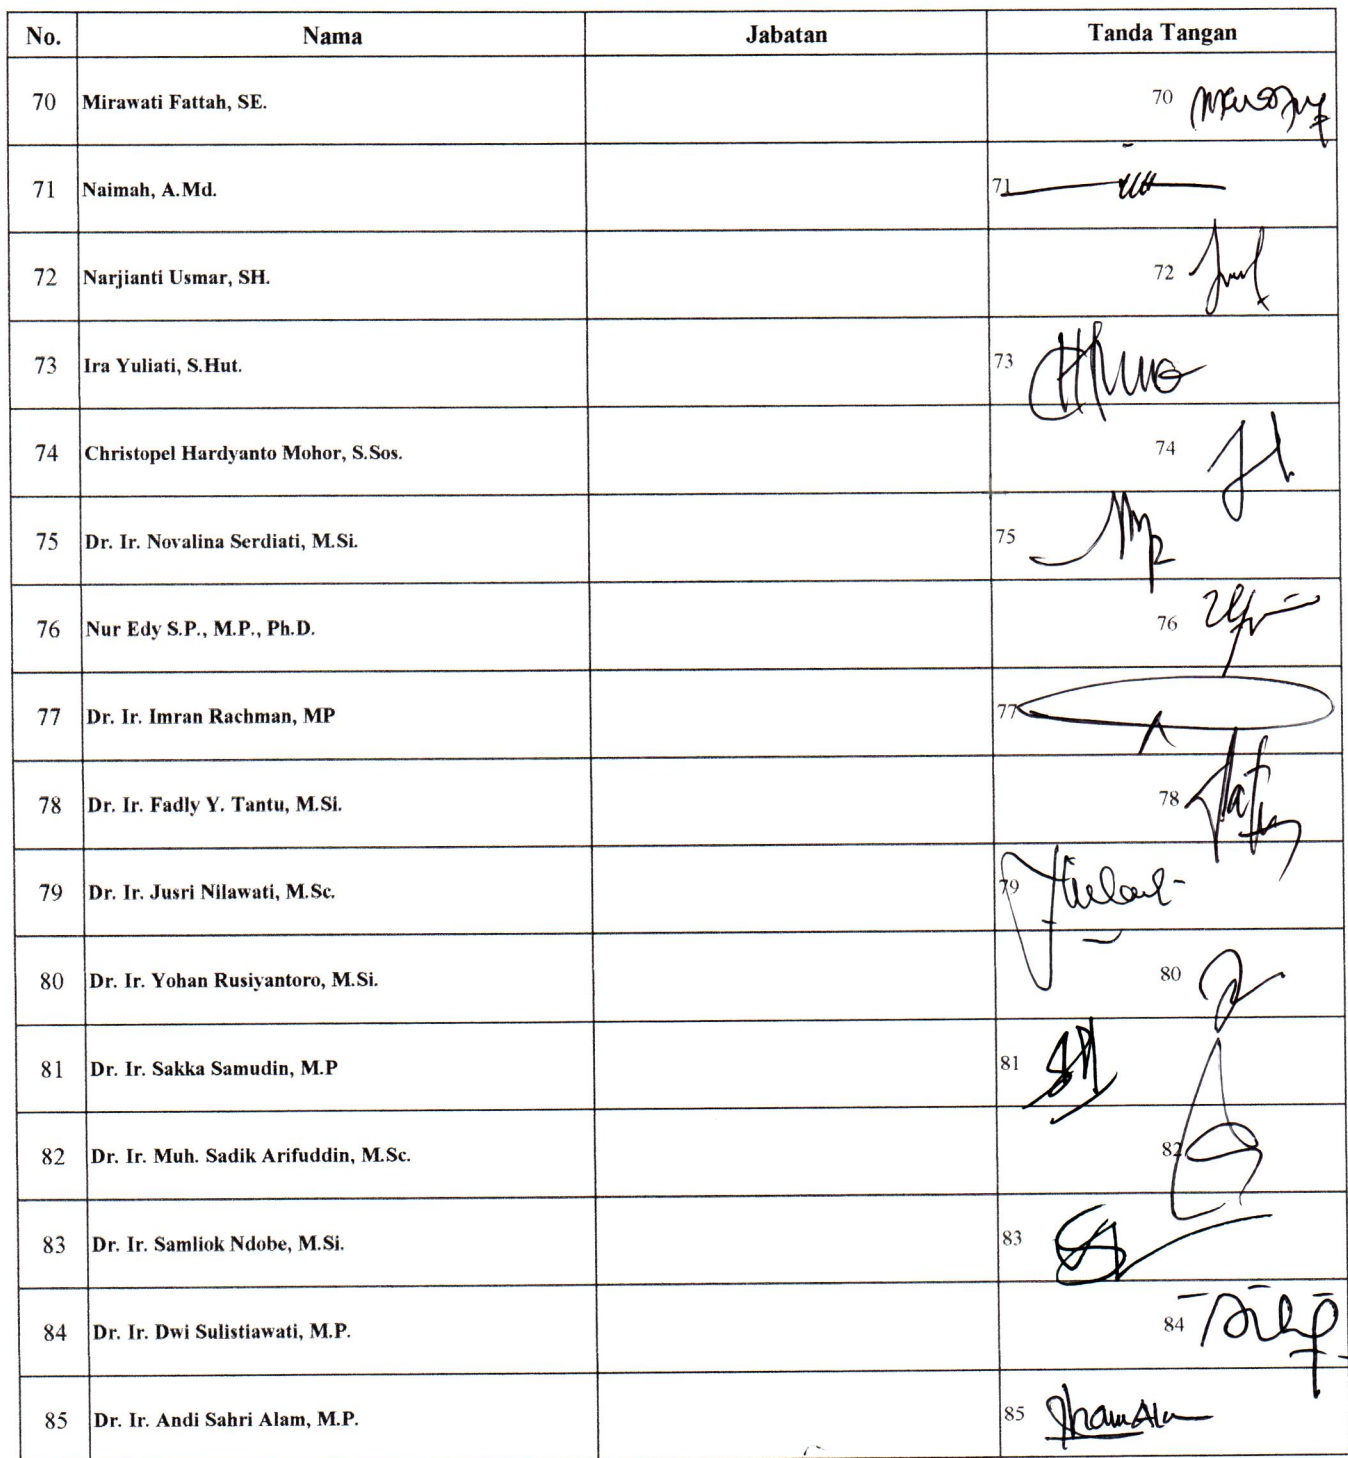 No. Nama Jabatan Tanda Tangan
70 Mirawati Fattah, SE. 70
71 Naimah, A.Md. 71
72 Narjianti Usmar, SH. 72
73 Ira Yuliati, S.Hut. 73
74 Christopel Hardyanto Mohor, S.Sos. 74
75 Dr. Ir. Novalina Serdiati, M.Si. 75
76 Nur Edy S.P., M.P., Ph.D. 76
77 Dr. Ir. Imran Rachman, MP 77
78 Dr. Ir. Fadly Y. Tantu, M.Si. 78
79 Dr. Ir. Jusri Nilawati, M.Sc. 79
80 Dr. Ir. Yohan Rusiyantoro, M.Si. 80
81 Dr. Ir. Sakka Samudin, M.P 81
82 Dr. Ir. Muh. Sadik Arifuddin, M.Sc. 82
83 Dr. Ir. Samliok Ndobe, M.Si. 83
84 Dr. Ir. Dwi Sulistiawati, M.P. 84
85 Dr. Ir. Andi Sahri Alam, M.P. 85